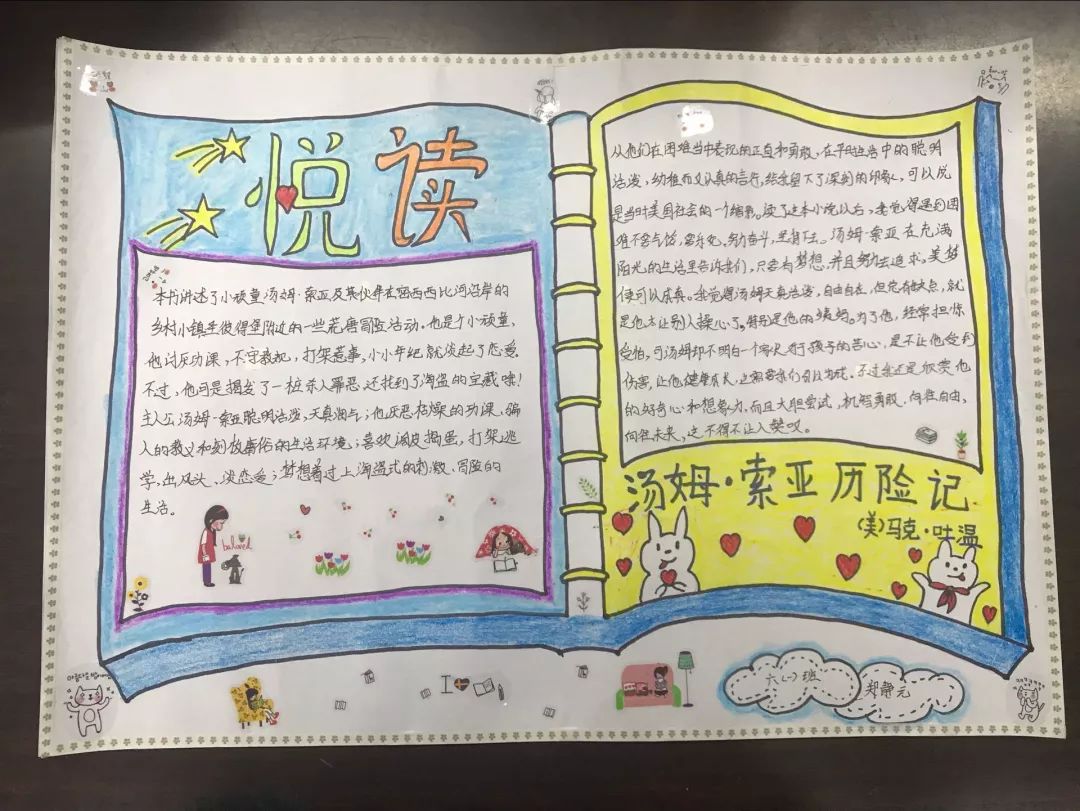 悦读
本书讲述了小顽童汤姆·索亚及其伙伴在密西西比河沿岸的
乡村小镇圣彼得堡附近的一些荒唐冒险活动。他是个小顽童,
他讨厌功课,不守教规,打架惹事,小小年纪就谈起了恋爱
不过,他可是揭发了一桩杀人罪恶,还找到了海盗的宝藏噢!
主人公汤姆·索亚聪明活泼,天真淘气;他厌恶枯燥的功课、骗
人的教义和刻板庸俗的生活环境;喜欢调皮捣蛋,打架逃
学、出风头、谈恋爱;梦想着过上海盗式的刺激、冒险的
生活。
beloved
从他们在困难当中表现的正直和勇敢,在平时生活中的聪明
活泼,幼稚而又认真的言行,给我留下了深刻的印象,可以说
是当时美国社会的一个缩影。读了这本小说以后,我觉得遇到困
难不要气馁,要乐观、努力奋斗,坚持下去。汤姆·索亚在充满
阳光的生活里告诉我们,只要有梦想,并且努力去追求,美梦
便可以成真。我觉得汤姆天真活泼,自由自在,但他有缺点,就
是他太让别人操心了。特别是他的姨妈。为了他,经常担惊
受怕,可汤姆却不明白一个家长对于孩子的苦心,是不让他受到
伤害,让他健康成长,这都需要我们引以为戒。不过我还是欣赏他
的好奇心和想象力,而且大胆尝试,机智勇敢、向往自由,
向往未来,这不得不让人赞叹。
汤姆·索亚历险记
(美)马克·吐温
I
六(一)班
郑静元